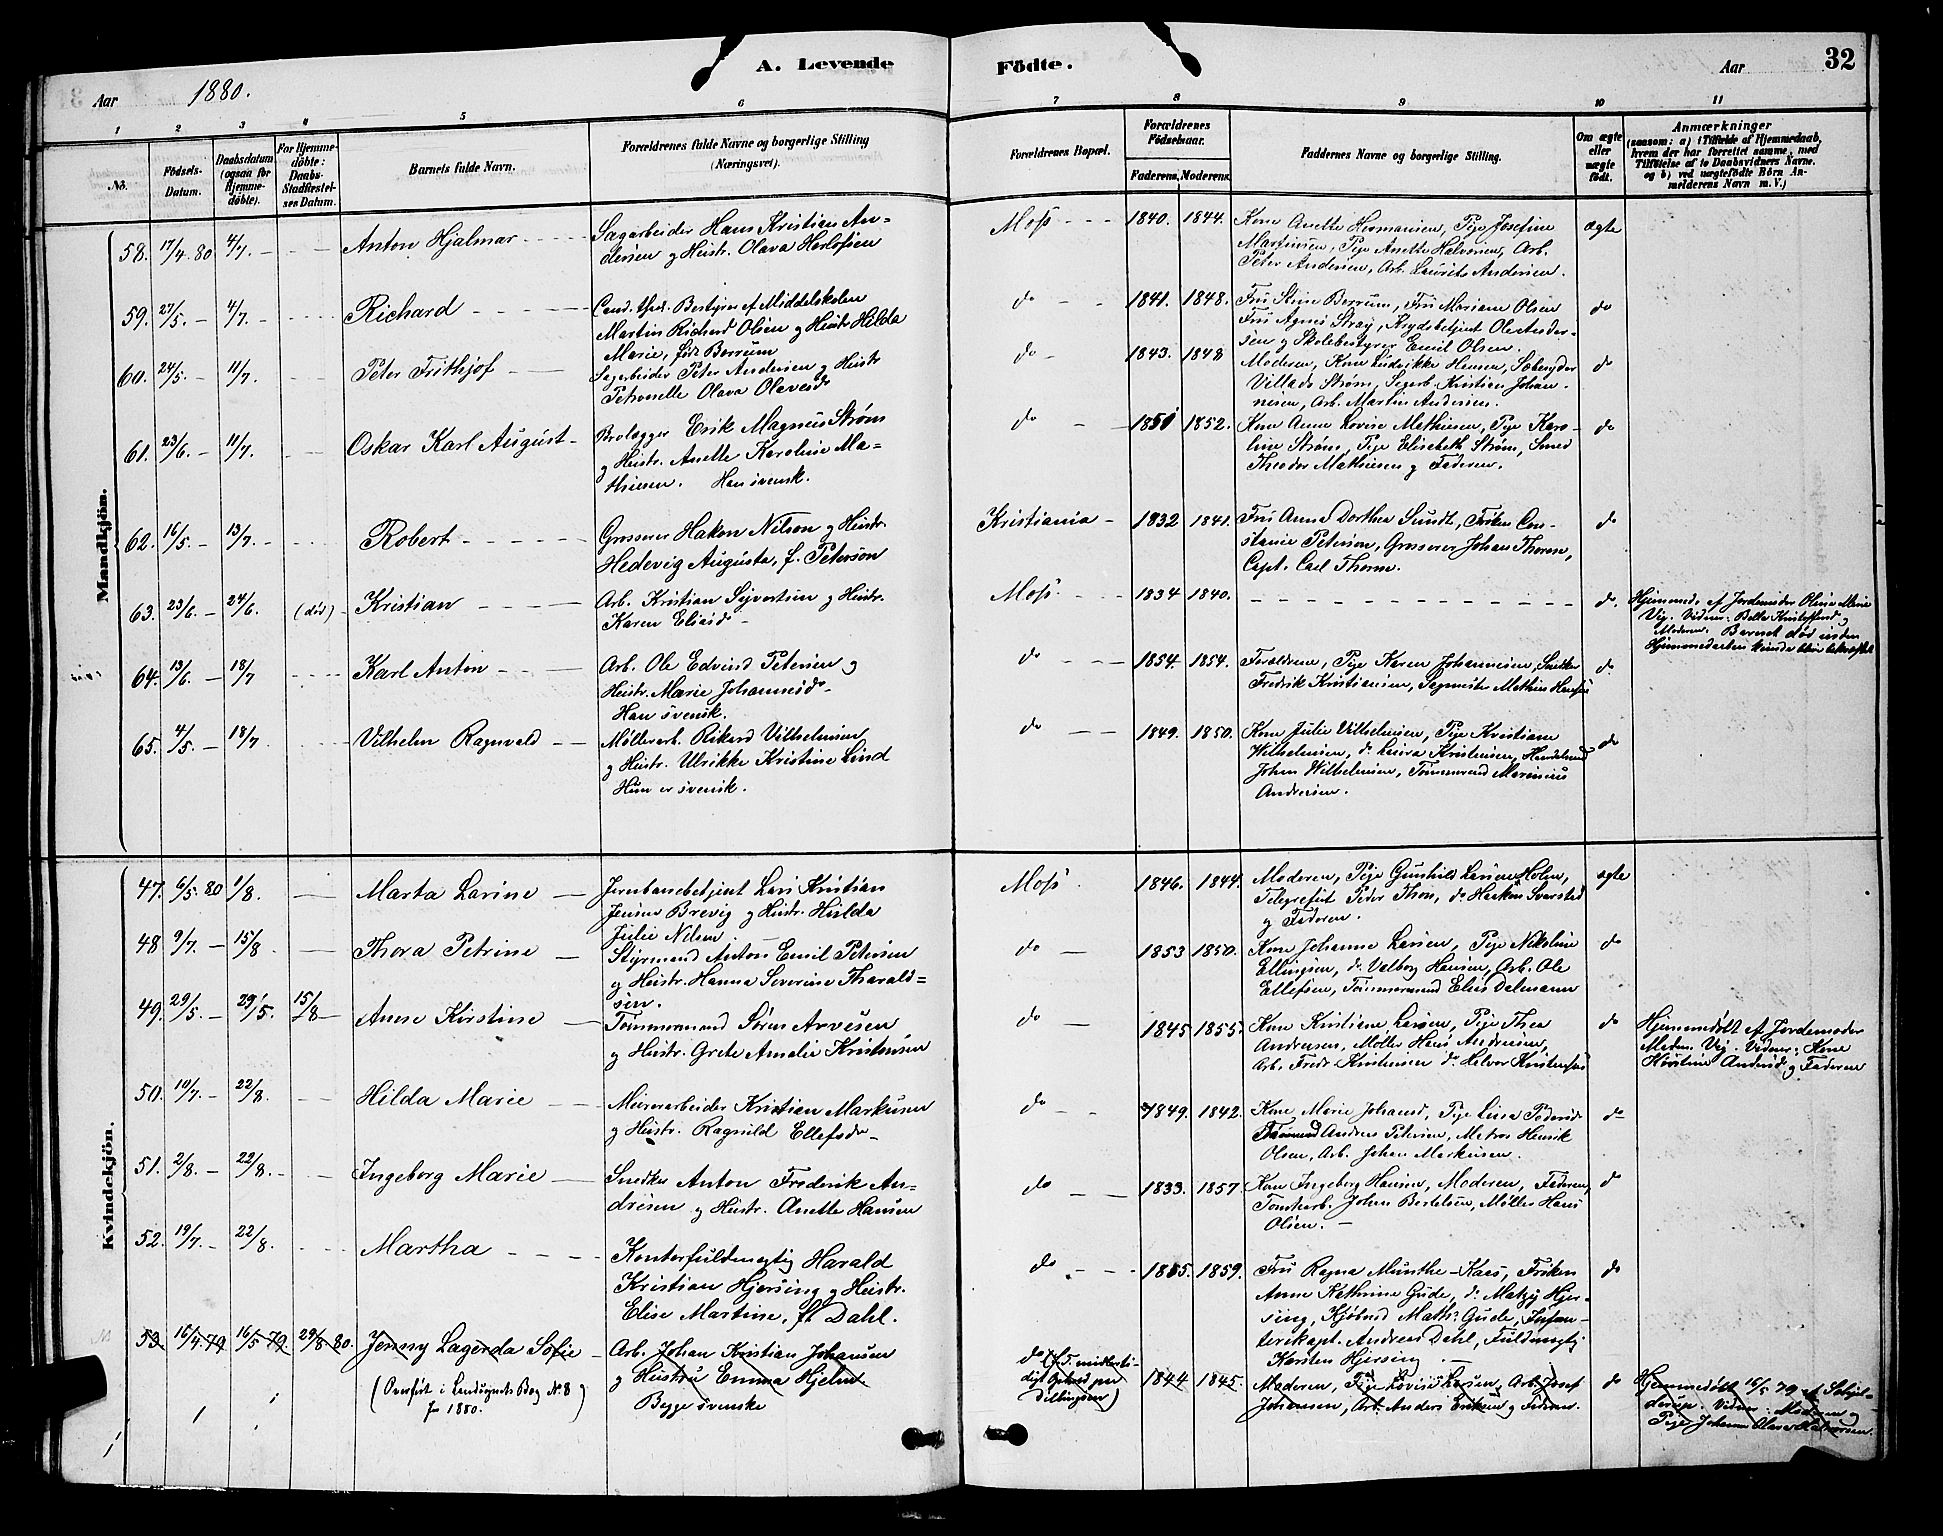 A. Levende Födte.
32
Aar 1880.
Aar
1 2 3 4 5 6 7 8 9 10 11
No.
Födsels-Datum.
Daabsdatum (ogsaa for Hjemme-döbte).
For Hjemme-döbte: Daabs-Stadfæstel-ses Datum.
Barnets fulde Navn.
Forældrenes fulde Navne og borgerlige Stilling (Næringsvei).
Forældrenes Bopæl.
Forældrenes Födselsaar.
Faderens. Moderens.
Faddernes Navne og borgerlige Stilling.
Om ægte eller uægte födt.
Anmærkninger (saasom: a) i Tilfælde af Hjemmedaab, hvem der har forrettet samme, med Tilföielse af to Daabsvidners Navne, og b) ved uægtefödte Börn Anmelderens Navn m. V.)
Mandkjön.
58. 17/4 80 4/7. Anton Hjalmar
Sagarbeider Hans Kristian An=
dersen og Hustr. Olava Herlofsen
Moss 1840. 1844.
Kone Anette Hermansen, Pige Josefine
Martinsen, Pige Anette Halvorsen, Arb.
Peter Andersen, Arb. Laurits Andersen.
ægte
59. 27/5. 4/7. Richard
Cand. theol. Bestyrer af Middelskolen
Martin Richard Olsen og Hustr. Hilda
Marie, født Borrum
do 1841. 1848.
Fru Stine Borrum, Fru Mariane Olsen
Fru Agnes Stray, Krydsbetjent Ole Ander-
sen og Skolebestyrer Emil Olsen.
do
60. 24/5. 11/7. Peter Frithjof
Sagarbeider Peter Andersen og Hustr
Petronelle Olava Olavesd
do 1843. 1848
Moderen, Kone Ludvikke Hansen, Sæbesyder
Villads Strøm, Sagarb. Kristian Johan-
nesen, Arb. Martin Andersen.
do
61. 23/6. 11/7. Oskar Karl August
Brolægger Erik Magnus Strøm
og Hustr. Anette Karoline Ma=
thisen. Han svensk.
do 1851 1852.
Kone Anne Lovise Mathisen, Pige Karo-
line Strøm, Pige Elisabeth Strøm, Smed
Theodor Mathisen og Faderen.
do
62. 16/5. 13/7. Robert
Grosserer Hakon Nilson og Hustr.
Hedevig Augusta, f. Peterson
Kristiania 1832 1841.
Fru Anna Dorthea Sundt, Frøken Con-
stance Peterson, Grosserer Johan Thoresen,
Capt. Carl Thorne.
do
63. 23/6. 24/6. (død) Kristian
Arb. Kristian Syvertsen og Hustr.
Karen Eliasd
Moss 1834 1840.
do.
Hjemmed. af Jordemoder Oline Marie
Vig. Vidner: Kristoffersd og
Moderen. Barnet død inden
Hjemmedaaben kunde blive bekræftet
64. 13/6. 18/7 Karl Anton
Arb. Ole Edvind Petersen og
Hustr. Marie Johannesd.
Han svensk.
do 1854. 1854.
Forældrene, Pige Karen Johannesen, Snekker
Fredrik Kristiansen, Sagmester Mathias Hansen
do.
65. 4/5. 18/7 Vilhelm Ragnvald
Møllerarb. Rikard Vilhelmsen,
og Hustr. Ulrikke Kristine Lind
Hun er svensk.
do 1849. 1850.
Kone Julie Vilhelmsen, Pige Kristiane
Wilhelmsen, do Laura Kristensen, Handelsmd
Johan Wilhelmsen, Tømmermand Marinius
Andersen.
do
Kvindekjön.
47. 6/5. 80 1/8. Marta Larine
Jernbanebetjent Lars Kristian
Jensen Brevig og Hustr. Hulda
Julie Nilsen.
Moss. 1846. 1844.
Moderen, Pige Gunhild Larsen Holm,
Telegrafist Peder Thon, do Haakon Svarstad
og Faderen.
ægte
48. 9/7. 15/8 Thora Petrine
Styrmand Anton Emil Petersen
og Hustr. Hanna Severine Tharald-
sen.
do 1853 1850.
Kone Johanne Larsen, Pige Nikoline
Ellingsen, do Valborg Hansen, Arb. Ole
Ellefsen, Tømmermand Elias Dalmann
do
49. 29/5. 29/5. 15/8 Anne Kirstine
Tømmermand Søren Arvesen
og Hustr. Grete Amalie Kristensen
do 1845 1855.
Kone Kristiane Larsen, Pige Thea
Andersen, Møller Hans Andersen,
Arb. Fredr. Kristensen do Halvor Kristensen
do
Hjemmedøbt af Jordemoder
Madm. Vig. Vidner: Kone
Kirstine Andersd og Faderen
50. 10/7. 22/8. Hilda Marie
Murerarbeider Kristian Markusen
og Hustr. Ragnild Ellefsd
do 1849. 1842.
Kone Marie Johansd, Pige Lina Pedersd
Tømmermd Andreas Petersen, Matros Henrik
Olsen, Arb. Johan Markusen.
do
51. 2/8. 22/8. Ingeborg Marie
Snedker Anton Frederik An=
dresen og Hustr. Anette Hansen
do 1833. 1857.
Kone Ingeborg Hansen, Moderen, Faderen,
Tomtearb. Johan Bertelsen, Møller Hans
Olsen.
do
52. 19/7. 22/8. Martha
Kontorfuldmægtig Harald
Kristian Hjersing og Hustr.
Elise Martine, f. Dahl.
do 1855. 1859.
Fru Ragna Munthe-Kaas, Frøken
Anne Kathrine Gude, do Matzy Hjer-
sing, Kjøbmd Maths. Gude, Infan-
terikapt. Andreas Dahl, Fuldmægtig
Karsten Hjersing.
do
53 16/4 79 16/5 79. 29/8 80. Jenny Lagerda Sofie
(Overført i Landsognets Bog No. 8
for 1880.)
Arb. Johan Kristian Johansen
og Hustru Emma Hjelm.
Begge svenske
do (f. T. midlerti-
digt Ophold paa
Dillingøen)
1844 1845.
Moderen, Pige Lovise Larsen, Arb. Josef
Johansen, Arb. Anders Eriksen og Faderen.
do
Hjemmedøbt 16/5 79 af Schjel-
derup. Vidner: Moderen og
Pige Johanne Olava Halvorsen.